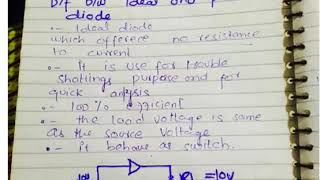 Dif b/w Ideal and P
diode
:- Ideal diode
which offerece no resistance
to current
:- It is use for trouble
shottings purpose and for
quick anlysis
:- 100% efficient
:- the load voltage is same
as the source voltage
:- it behave as switch.
10V =10V